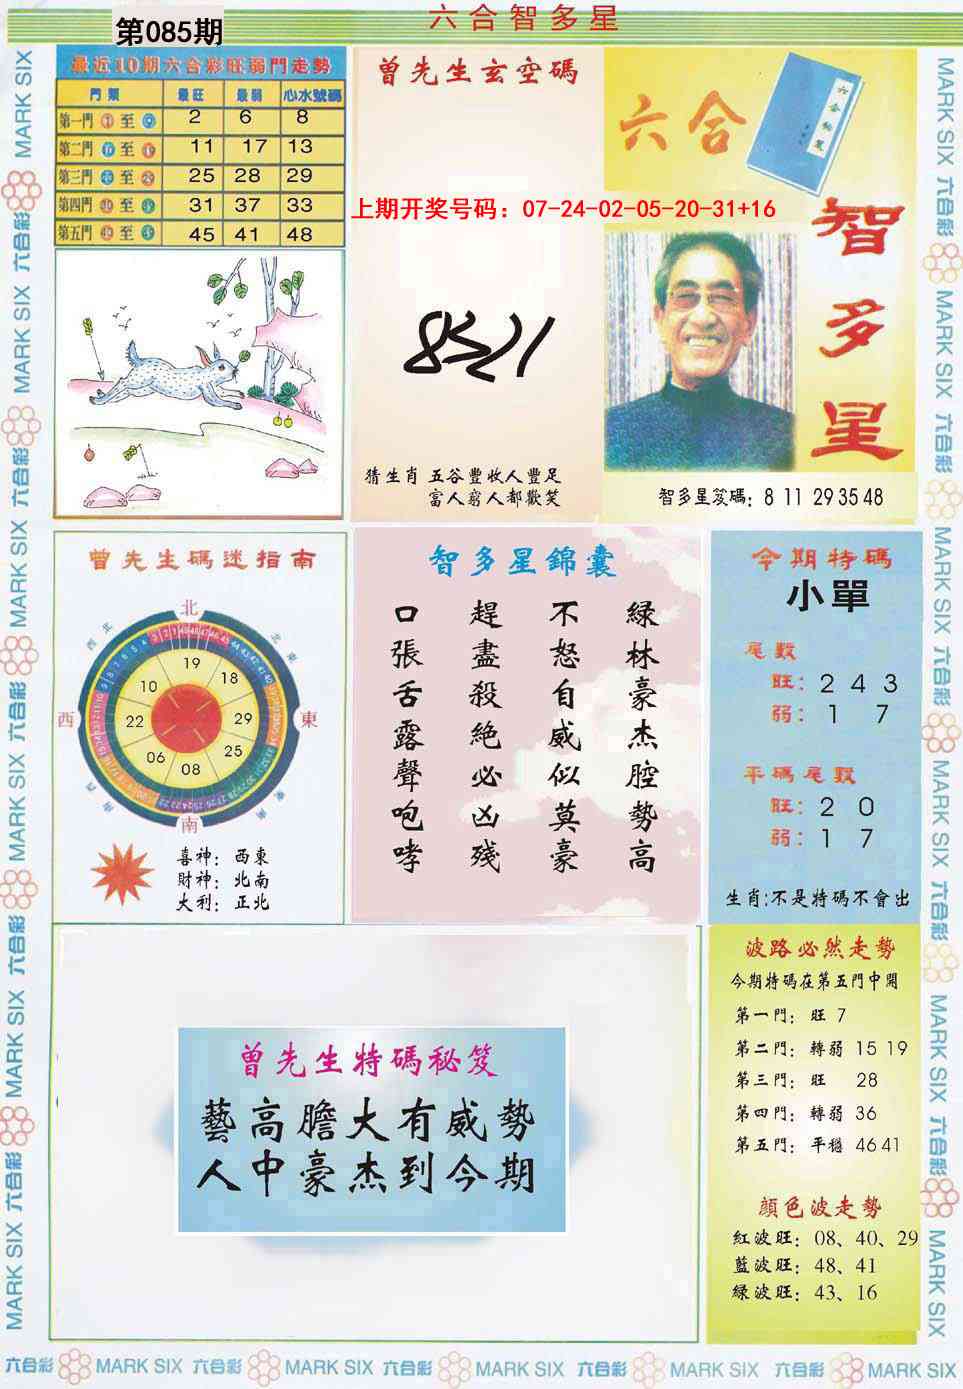 六合智多星
第085期
最近10期六合彩旺弱門走勢
門類 最旺 最弱 心水號碼
第一門 至 2 6 8
第二門 至 11 17 13
第三門 至 25 28 29
第四門 至 31 37 33
第五門 至 45 41 48
曾先生玄空碼
上期开奖号码：07-24-02-05-20-31+16
猜生肖 五谷豐收人豐足
富人窮人都歡笑
六合
智多星
智多星笈碼：8 11 29 35 48
曾先生碼迷指南
北
西北
東北
19
10 18
西 22 29 東
06 25
08
西南
東南
南
喜神：西東
財神：北南
大利：正北
智多星錦囊
綠林豪杰腔勢高
不怒自威似莫豪
趕盡殺絕必凶殘
口張舌露聲咆哮
今期特碼
小單
尾數
旺：2 4 3
弱：1 7
平碼尾數
旺：2 0
弱：1 7
生肖：不是特碼不會出
曾先生特碼秘笈
藝高膽大有威勢
人中豪杰到今期
波路必然走勢
今期特碼在第五門中開
第一門：旺 7
第二門：轉弱 15 19
第三門：旺 28
第四門：轉弱 36
第五門：平穩 46 41
顔色波走勢
紅波旺：08、40、29
藍波旺：48、41
綠波旺：43、16
六合彩 MARK SIX 六合彩 MARK SIX 六合彩 MARK SIX 六合彩 MARK SIX 六合彩 MARK SIX